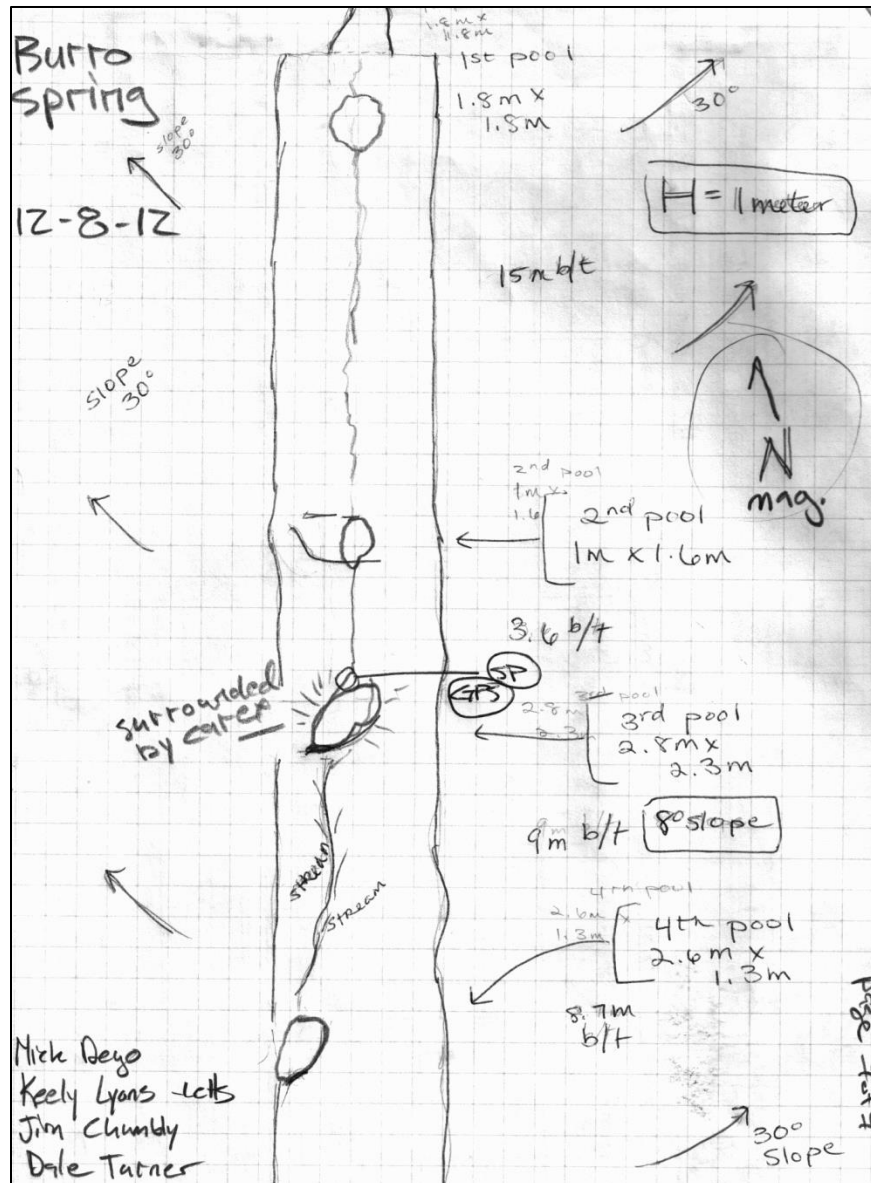 Burro
spring
12-8-12
slope
30°
slope
30°
1.8m x
1.8m
1st pool
1.8m x
1.8m
30°
H = 1 meter
15m b/t
N
mag.
2nd pool
1m x
1.6
2nd pool
1m x 1.6m
3.6 b/t
SP
GPS
surrounded
by carex
3rd pool
2.8m
2.3
3rd pool
2.8m x
2.3m
9m b/t
8° slope
stream
stream
4th pool
2.6m x
1.3m
4th pool
2.6m x
1.3m
8.7m
b/t
page 1 of 7
30°
slope
Mick Deyo
Keely Lyons-Letts
Jim Chumbly
Dale Turner